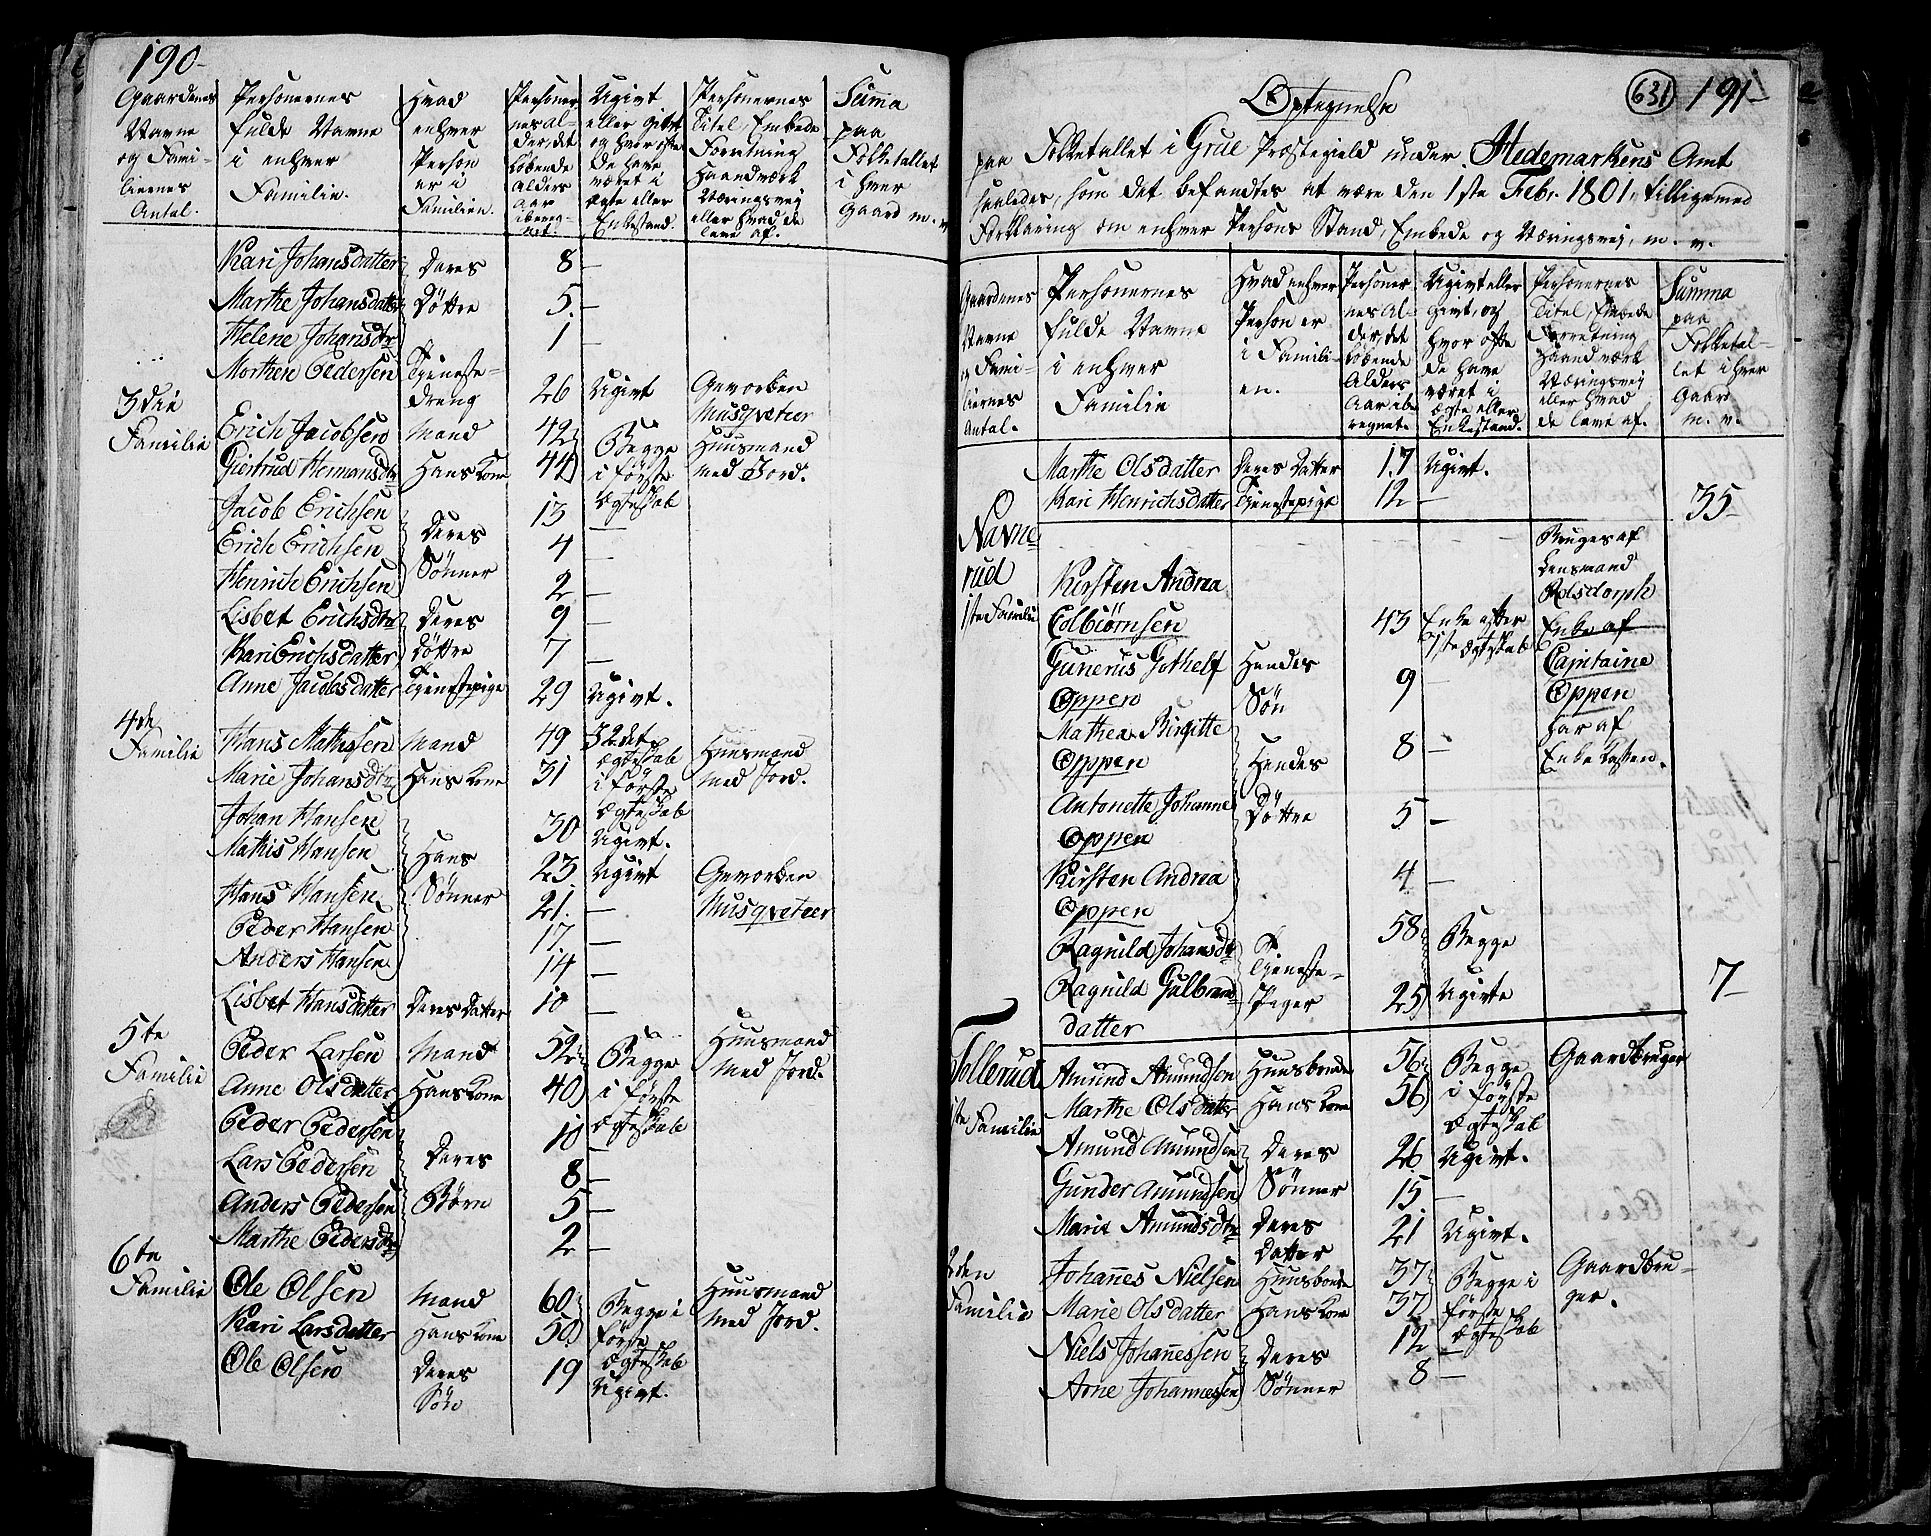 190
Gaardenes Navne og Familiernes Antal.
Personernes fulde Navne i enhver Familie.
Hvad enhver Person er i Familien.
Personernes Alder, det løbende Alders Aar iberegnet.
Ugivt eller givt og hvor ofte de have været i Ægte eller Enkestand.
Personernes Titel, Embede Forretning Haandværk Næringsvej eller hvad de leve af.
Summa paa Folketallet i hver Gaard m. v.
Kari Johansdatter Deres 8 —
Marthe Johansdatter Døttre 5 —
Helene Johansdtr 1 —
Morthen Pedersen Tjeneste-dreng 26 Ugivt Gevorben Musqveteer
3die Familie
Erich Jacobsen Mand 42 Begge i første Ægteskab Huusmand med Jord.
Giertrud Hermansdtr Hans Kone 44
Jacob Erichsen 13 —
Erich Erichsen Deres 4 —
Henrich Erichsen Sønner 2 —
Lisbet Erichsdtr Deres 9 —
Kari Erichsdatter Døttre 7 —
Anne Jacobsdatter Tjenestepige 29 Ugivt.
4de Familie
Hans Mathissen Mand 49 I 2det Ægteskab Huusmand med Jord.
Marie Johansdtr Hans Kone 31 i første Ægteskab
Johan Hansen 30 Ugivt.
Mathis Hansen Hans 23 Ugivt Gevorben Musqveteer
Hans Hansen Sønner 21. —
Peder Hansen 17 —
Anders Hansen 14 —
Lisbet Hansdatter Deres Datter 10 —
5te Familie
Peder Larsen Mand 52 Begge i første Ægteskab Huusmand med Jord.
Anne Olsdatter Hans Kone 40
Peder Pedersen 10 —
Lars Pedersen Deres 8 —
Anders Pedersen Børn 5 —
Marthe Pedersdtr 2 —
6te Familie
Ole Olsen Mand 60 Begge i første Ægteskab Huusmand med Jord.
Kari Larsdatter Hans Kone 50
Ole Olsen Deres Søn 19 Ugivt.
631 191
Optegnelse
paa Folketallet i Grue Præstegield under Hedemarkens Amt
saaledes, som det befandtes at være den 1ste Febr. 1801, tilligemed
Forklaring om enhver Persons Stand, Embede og Næringsvej, m. v.
Gaardenes Navne og Familiernes Antal.
Personernes fulde Navne i enhver Familie
Hvad enhver Person er i Familien.
Personernes Alder, det løbende Alders Aar iberegnet.
Ugivt eller givt, og hvor ofte de have været i Ægte eller Enkestand.
Personernes Titel, Embede Forretning Haandværk Næringsvej eller hvad de leve af.
Summa paa Folketallet i hver Gaard m. v.
Marthe Olsdatter Deres Datter 17 Ugivt.
Kari Henrichsdatter Tjenestepige 12 — 35
Navnerud
1ste Familie
Bruges af Lensmand Rolsdorph
Kirsten Andrea Colbiørnsen 43 Enke efter 1ste Ægteskab Enke af Capitaine Oppen har af Enke Kassen.
Gunerus Gothelf Oppen Hendes Søn 9 —
Mathea Birgitte Oppen Hendes 8 —
Antonette Johanne Oppen Døttre 5 —
Kirsten Andrea Oppen 4 —
Ragnild Johansdtr Tjeneste- 58 Begge
Ragnild Gulbrandsdatter Piger 25 Ugivte 7
Tollerud
1ste Familie
Amund Amundsen Huusbonde 56 Begge i første Ægteskab Gaardbruger
Marthe Olsdatter Hans Kone 56
Amund Amundsen Deres 26 Ugivt.
Gunder Amundsen Sønner 15 —
Marie Amundsdtr Deres Datter 21 Ugivt.
2den Familie
Johannes Nielsen Huusbonde 37 Begge i første Ægteskab Gaardbruger.
Marie Olsdatter Hans Kone 37
Niels Johannessen Deres 12 —
Arne Johannessen Sønner 8 —